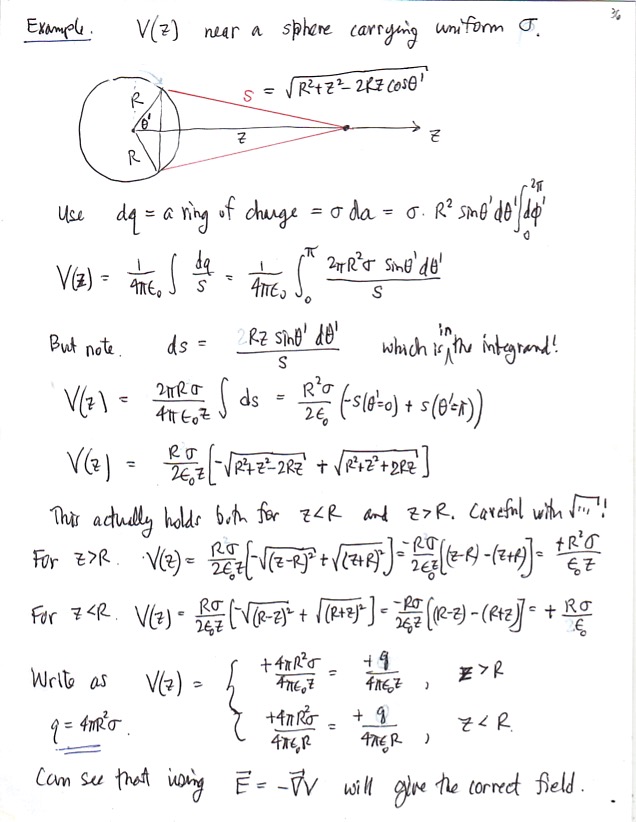 3/6
Example. V(z) near a sphere carrying uniform σ.
R θ' R s = √(R²+z²-2Rz cosθ') z z
Use dq = a ring of charge = σ da = σ · R² sinθ'dθ' ∫₀^2π dφ'
V(z) = 1/4πε₀ ∫ dq/s = 1/4πε₀ ∫₀^π 2πR²σ sinθ'dθ'/s
But note. ds = 2Rz sinθ' dθ'/s which is in the integrand!
V(z) = 2πRσ/4πε₀z ∫ ds = R²σ/2ε₀ (-s(θ'=0) + s(θ'=π))
V(z) = Rσ/2ε₀z [-√(R²+z²-2Rz) + √(R²+z²+2Rz)]
This actually holds both for z<R and z>R. Careful with √...!
For z>R. V(z) = Rσ/2ε₀z [-√(z-R)² + √(z+R)²] = -Rσ/2ε₀z [(z-R) - (z+R)] = +R²σ/ε₀z
For z<R. V(z) = Rσ/2ε₀z [-√(R-z)² + √(R+z)²] = -Rσ/2ε₀z [(R-z) - (R+z)] = + Rσ/ε₀
Write as V(z) = { +4πR²σ/4πε₀z = +q/4πε₀z , z>R
q = 4πR²σ. { +4πR²σ/4πε₀R = +q/4πε₀R , z<R.
Can see that using E⃗ = -∇⃗V will give the correct field.